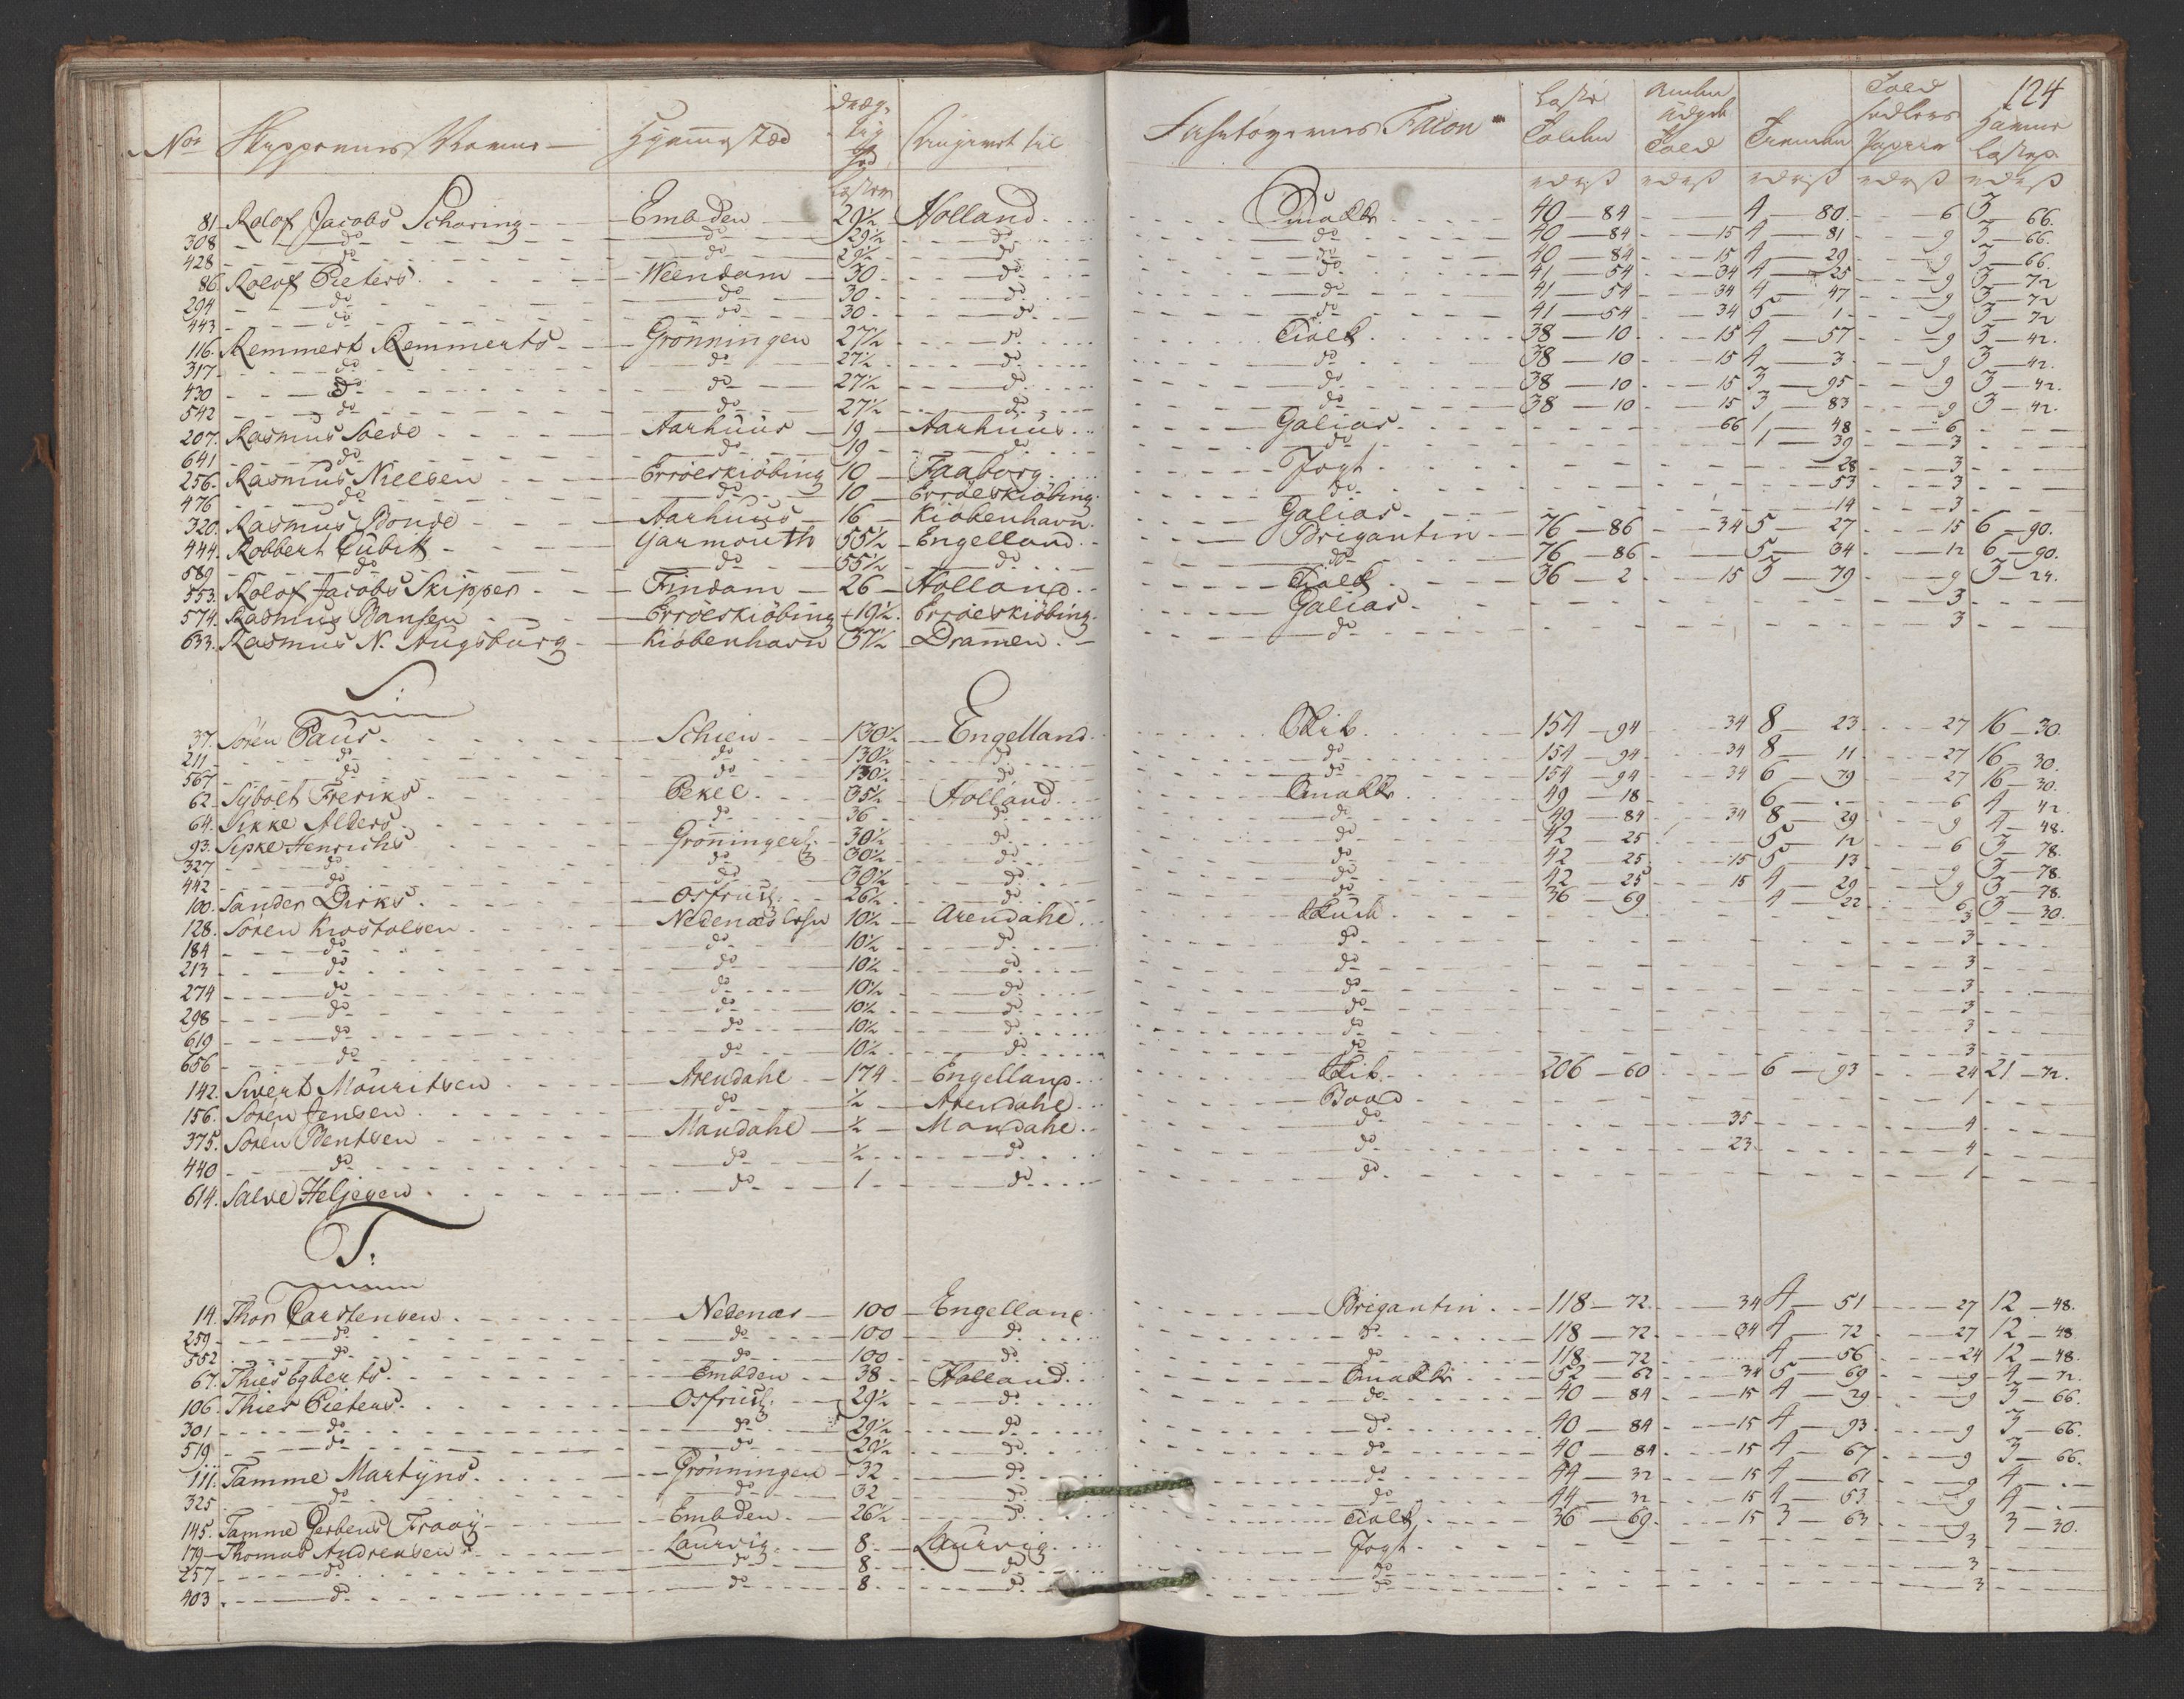 124
No. Skippernes Navne Hjemmested dræg- tig hed Lester Angivet til Fartøyernes Facon Laste Tolden Anden Udgaaende Told Tienden Told Sedlers Papiir Havne Laste p.
81 Rolof Jacobs Scharing Embden 29½ Holland Smakke 40 — 84 4 — 80 6 3 — 66.
308 do do 29½ do do 40 — 84 15 4 — 81 9 3 — 66.
428 do do 29½ do do 40 — 84 15 4 — 29 9 3 — 66.
86 Rolof Pieters Weendam 30 do do 41 — 54 34 4 — 25 9 3 — 72
294 do do 30 do do 41 — 54 34 4 — 47 9 3 — 72
443 do do 30 do do 41 — 54 34 5 — 1 9 3 — 72
116. Remmert Remmerts Grönningen 27½ do Tialk 38 — 10 15 4 — 57 9 3 — 42.
317 do do 27½ do do 38 — 10 15 4 — 3 9 3 — 42.
430 do do 27½ do do 38 — 10 15 3 — 95 9 3 — 42.
542 do do 27½ do do 38 — 10 15 3 — 83 9 3 — 42.
207. Rasmus Soede Aarhuus 19 Aarhuus Galias 66 1 — 48 6
641 do do 19 do do 1 — 39 3
256. Rasmus Nielsen Erröeskiöbing 10 Faaborg Jagt 28 3
476 do do 10 Erröeskiöbing do 53 3
320. Rasmus Bonde Aarhuus 16 Kiöbenhavn Galias 14 3
444. Robbert Cubitt Yarmouth 55½ Engelland Brigantin 76 — 86 34 5 — 27 15 6 — 90.
589 do do 55½ do do 76 — 86 5 — 34 12 6 — 90.
553. Rolof Jacobs Skipper Findam 26 Holland Tialk 36 — 2 15 3 — 79 9 3 — 24.
574. Rasmus Hansen Erröeskiöbing 19½ Erröeskiöbing Galias 3
633. Rasmus N. Augsburg Kiöbenhavn 37½ Dramen do 3
S:
37. Sören Paus Schien 130½ Engelland Skib 154 — 94 34 8 — 23 27 16 — 30.
211 do do 130½ do do 154 — 94 34 8 — 11 27 16 — 30.
567 do do 130½ do do 154 — 94 34 6 — 79 27 16 — 30.
62 Sijbolt Freriks Pekel 35½ Holland Smakke 49 — 18 6 — . 6 4 — 42
64. Sikke Alders do 36 do do 49 — 84 34 8 — 29 9 4 — 48.
93. Sipke Henrichs Grönningen 30½ do do 42 — 25 5 — 12 6 3 — 78.
327 do do 30½ do do 42 — 25 15 5 — 13 9 3 — 78.
442 do do 30½ do do 42 — 25 15 4 — 29 9 3 — 78.
100. Sander Dirks Osfriisl. 26½ do do 36 — 69 4 — 22 6 3 — 30.
128. Sören Krostofsen Nedenæs Lehn 10½ Arendahl Skuth 3
184 do do 10½ do do 3
213 do do 10½ do do 3
274 do do 10½ do do 3
298 do do 10½ do do 3
619 do do 10½ do do 3
656 do do 10½ do do 3
142. Sivert Mouritsen Arendahl 174 Engelland Skib 206 — 60 6 — 93 24 21 — 72.
156. Sören Jensen do ½ Arendahl Baad 1
375. Sören Bentsen Mandahl ½ Mandahl do 35 4
440 do do ½ do do 23 4
614. Salve Heljesen do 1 do do 1
T:
14. Thor Carstensen Nedenæs 100 Engelland Brigantin 118 — 72 34 4 — 51 27 12 — 48.
259 do do 100 do do 118 — 72 34 4 — 72 27 12 — 48
552 do do 100 do do 118 — 72 4 — 56 24 12 — 48.
67. Thies Egberts Embden 38 Holland Smakke 52 — 62 34 5 — 69 9 4 — 72.
106. Thies Pieters Osfriisl. 29½ do do 40 — 84 15 4 — 29 9 3 — 66.
301 do do 29½ do do 40 — 84 15 4 — 93 9 3 — 66.
519 do do 29½ do do 40 — 84 15 4 — 67 9 3 — 66.
111. Tamme Martÿns Grönningen 32 do do 44 — 32 15 4 — 61 9 4 — .
325 do do 32 do do 44 — 32 15 4 — 53 9 4 — .
145. Tamme Gerbens Fraaij Embden 26½ do Tialk 36 — 69 15 3 — 63 9 3 — 30.
179 Thomas Andreasen Laurvig 8 Laurvig Jagt 3
257 do do 8 do do 3
403 do do 8 do do 3